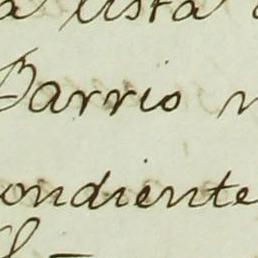 a lista
Barrio
ondiente